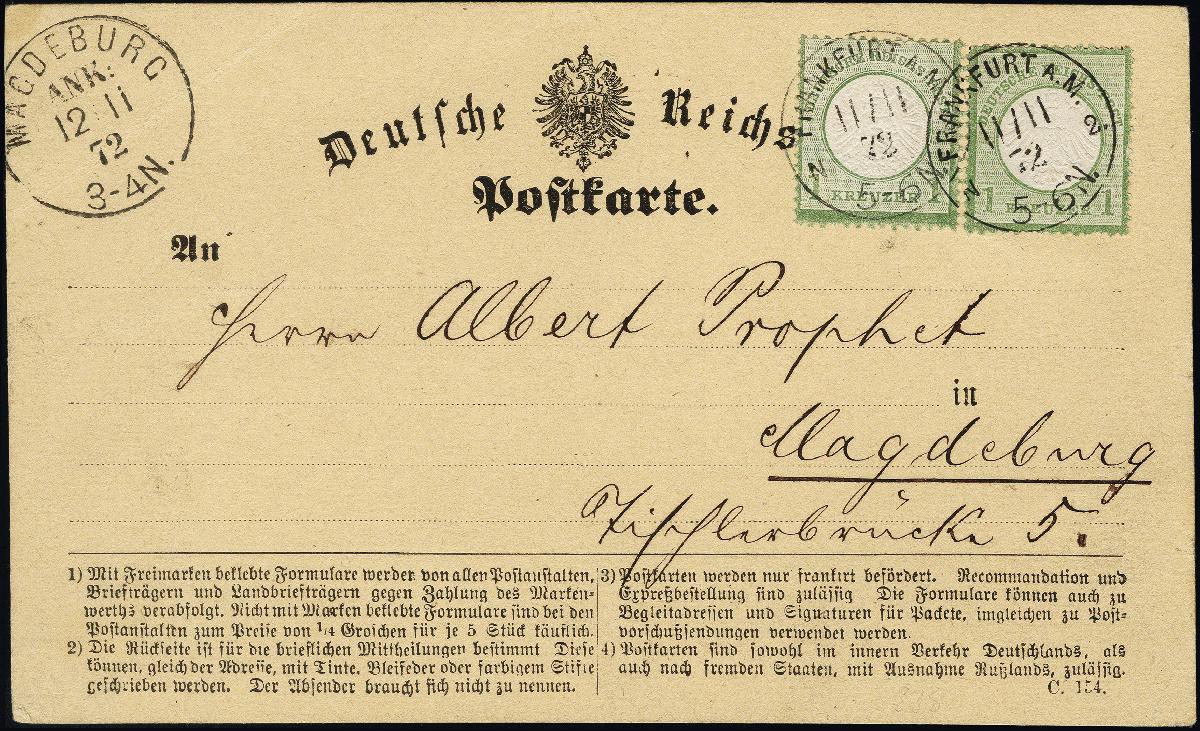 MAGDEBURG
ANK:
12 11
72
3-4N.
Deutsche Reichs
Postkarte.
FRANKFURT A.M.
11/11
72
N 5-6N.
1 KREUZER 1
FRANKFURT A.M. 2.
11/11
72
N 5-6N.
1 KREUZER 1
An
Herrn Albert Prophet
in
Magdeburg
Tischlerbrücke 5.
1) Mit Freimarken beklebte Formulare werden von allen Postanstalten,
Briefträgern und Landbriefträgern gegen Zahlung des Marken-
werths verabfolgt. Nicht mit Marken beklebte Formulare sind bei den
Postanstalten zum Preise von 1/4 Groschen für je 5 Stück käuflich.
2) Die Rückseite ist für die brieflichen Mittheilungen bestimmt Diese
können, gleich der Adresse, mit Tinte, Bleifeder oder farbigem Stifte
geschrieben werden. Der Absender braucht sich nicht zu nennen.
3) Postkarten werden nur frankirt befördert. Recommandation und
Expreßbestellung sind zulässig Die Formulare können auch zu
Begleitadressen und Signaturen für Packete, imgleichen zu Post-
vorschußsendungen verwendet werden.
4) Postkarten sind sowohl im innern Verkehr Deutschlands, als
auch nach fremden Staaten, mit Ausnahme Rußlands, zulässig.
C. 154.